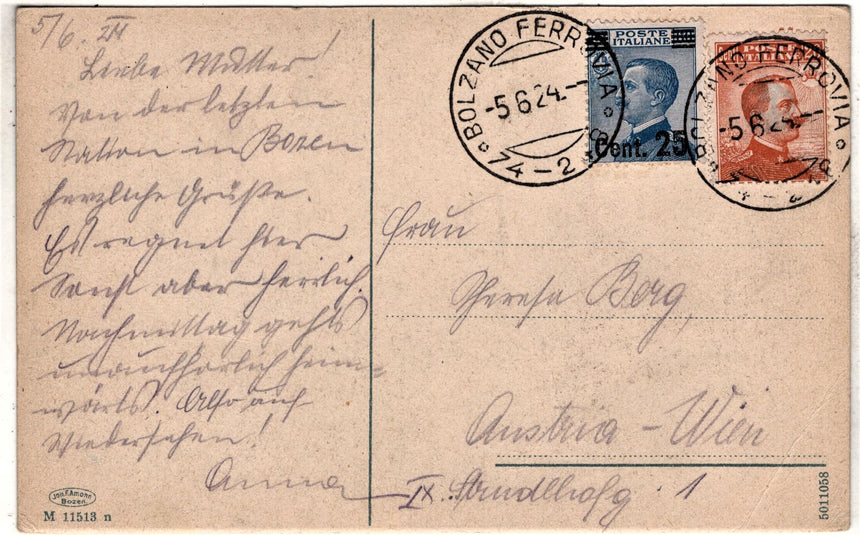 5/6. 24
Liebe Mutter!
Von der letzten
Station in Bozen
herzliche Grüße.
Es regnet hier
sonst aber herrlich.
Nachmittag gehts
unaufhörlich heim-
wärts. Also auf
Wiedersehen!
Anna
Joh. F. Amonn
Bozen.
M 11513 n
BOLZANO FERROVIA
-5 6 24.-
74-2
POSTE
ITALIANE
Cent. 25
BOLZANO FERROVIA
-5 6 24.-
Frau
Theresa Berg,
Austria - Wien
IX. 1
5011058